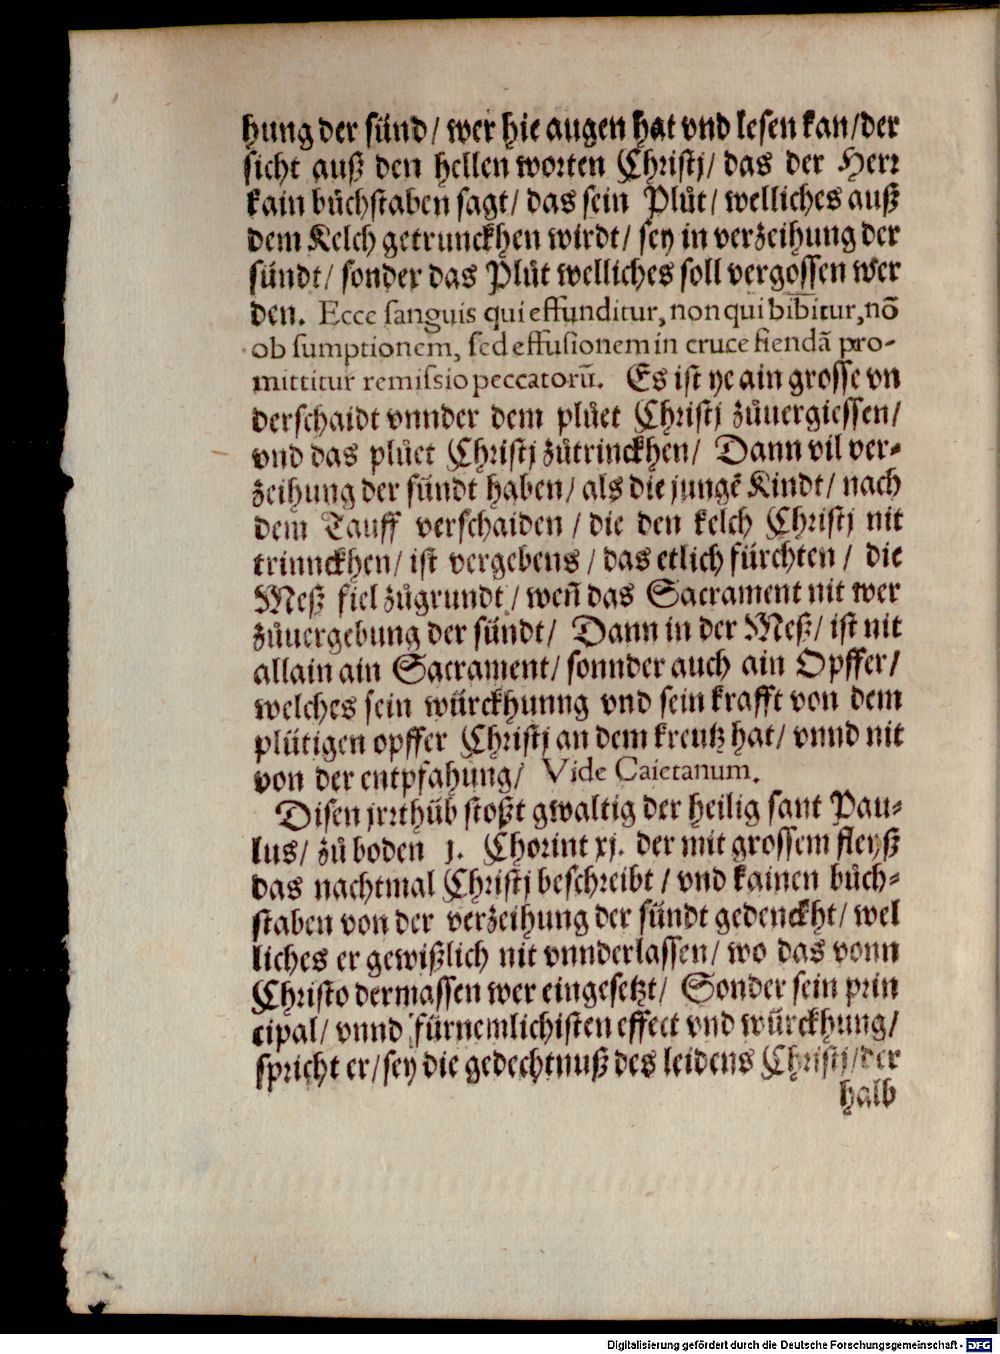 hung der sünd/ wer hie augen hat vnd lesen kan/der
sicht auß den hellen worten Christj/ das der Herr
kain bůchstaben sagt/ das sein Plůt/ welliches auß
dem Kelch getrunckhen wirdt/ sey in verzeihung der
sündt/ sonder das Plůt welliches soll vergossen wer
den. Ecce sanguis qui effunditur, non qui bibitur, nō
ob sumptionem, sed effusionem in cruce fiendā pro-
mittitur remissio peccatorū. Es ist ye ain grosse vn
derschaidt vnnder dem plůet Christj zůuergiessen/
vnd das plůet Christj zůtrinckhen/ Dann vil ver-
zeihung der sündt haben/ als die jungē Kindt/ nach
dem Tauff verschaiden / die den kelch Christj nit
trinnckhen/ ist vergebens / das etlich fürchten / die
Meß fiel zůgrundt / weñ das Sacrament nit wer
zůuergebung der sündt/ Dann in der Meß/ ist nit
allain ain Sacrament/ sonnder auch ain Opffer/
welches sein würckhunng vnd sein krafft von dem
plůtigen opffer Christj an dem kreutz hat/ vnnd nit
von der entpfahung/ Vide Caietanum.
Disen jrrthůb stoßt gwaltig der heilig sant Pau-
lus/ zů boden 1. Chorint xj. der mit grossem fleyß
das nachtmal Christj beschreibt / vnd kainen bůch-
staben von der verzeihung der sündt gedenckht/ wel
liches er gewißlich nit vnnderlassen/ wo das vonn
Christo dermassen wer eingesetzt/ Sonder sein prin
cipal/ vnnd fürnemlichisten effect vnd würckhung/
spricht er/ sey die gedechtnuß des leidens Christj/der
halb
Digitalisierung gefördert durch die Deutsche Forschungsgemeinschaft - DFG